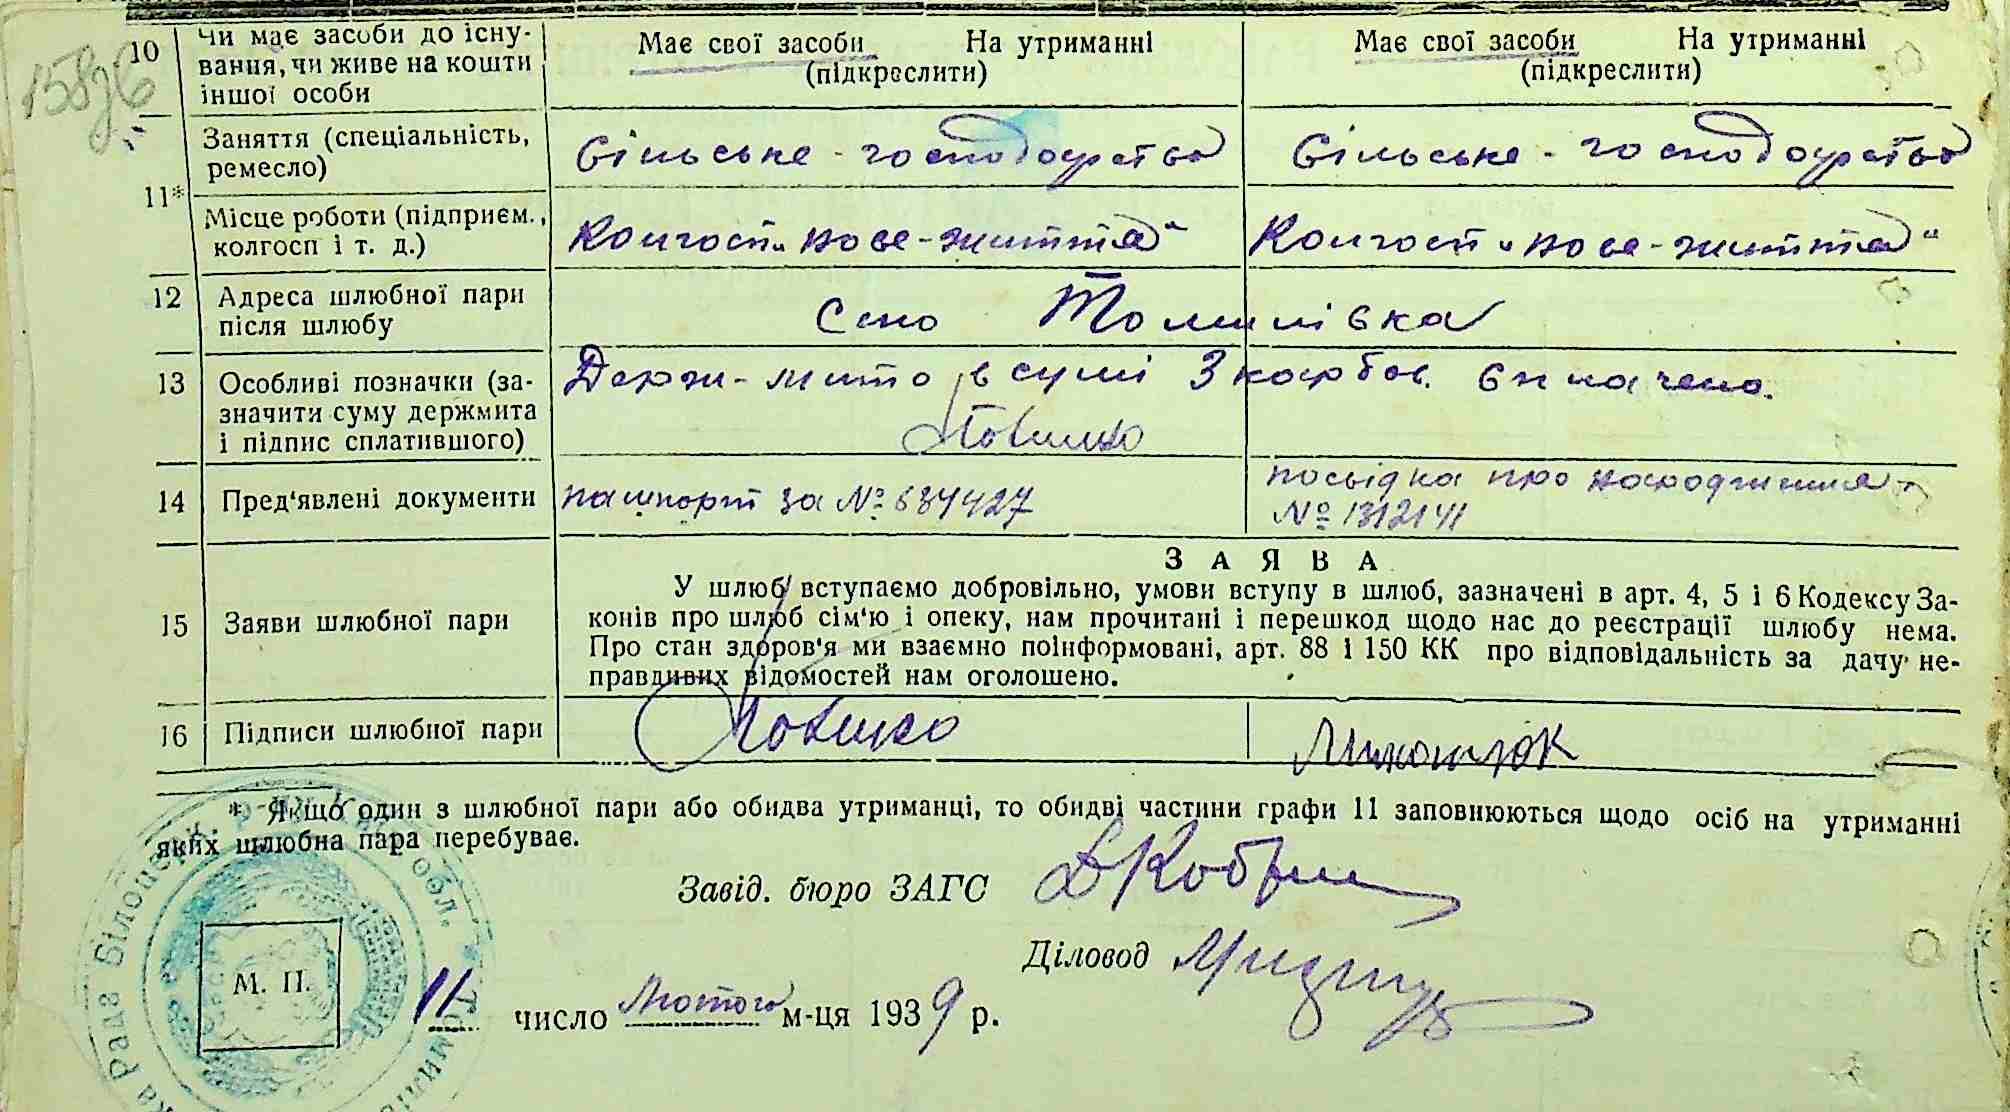 10 Чи має засоби до існу-
вання, чи живе на кошти
іншої особи
Має свої засоби На утриманні
(підкреслити)
Має свої засоби На утриманні
(підкреслити)
11*
Заняття (спеціальність,
ремесло)
Сільське-господарство
Сільське-господарство
Місце роботи (підприєм.,
колгосп і т. д.)
Колгосп „Нове-життя“
Колгосп „Нове-життя“
12 Адреса шлюбної пари
після шлюбу
Село Томилівка
13 Особливі позначки (за-
значити суму держмита
і підпис сплатившого)
Держ-мито в сумі 3 карбов. сплачено.
14 Пред‘явлені документи
пашпорт за № 684427
посвідка про народження
№ 1312141
15 Заяви шлюбної пари
ЗАЯВА
У шлюб вступаємо добровільно, умови вступу в шлюб, зазначені в арт. 4, 5 і 6 Кодексу За-
конів про шлюб сім‘ю і опеку, нам прочитані і перешкод щодо нас до реєстрації шлюбу нема.
Про стан здоров‘я ми взаємно поінформовані, арт. 88 і 150 КК про відповідальність за дачу не-
правдивих відомостей нам оголошено.
16 Підписи шлюбної пари
* Якщо один з шлюбної пари або обидва утриманці, то обидві частини графи 11 заповнюються щодо осіб на утриманні
яких шлюбна пара перебуває.
Завід. бюро ЗАГС
Діловод
М. П.
11 число Лютого м-ця 1939 р.